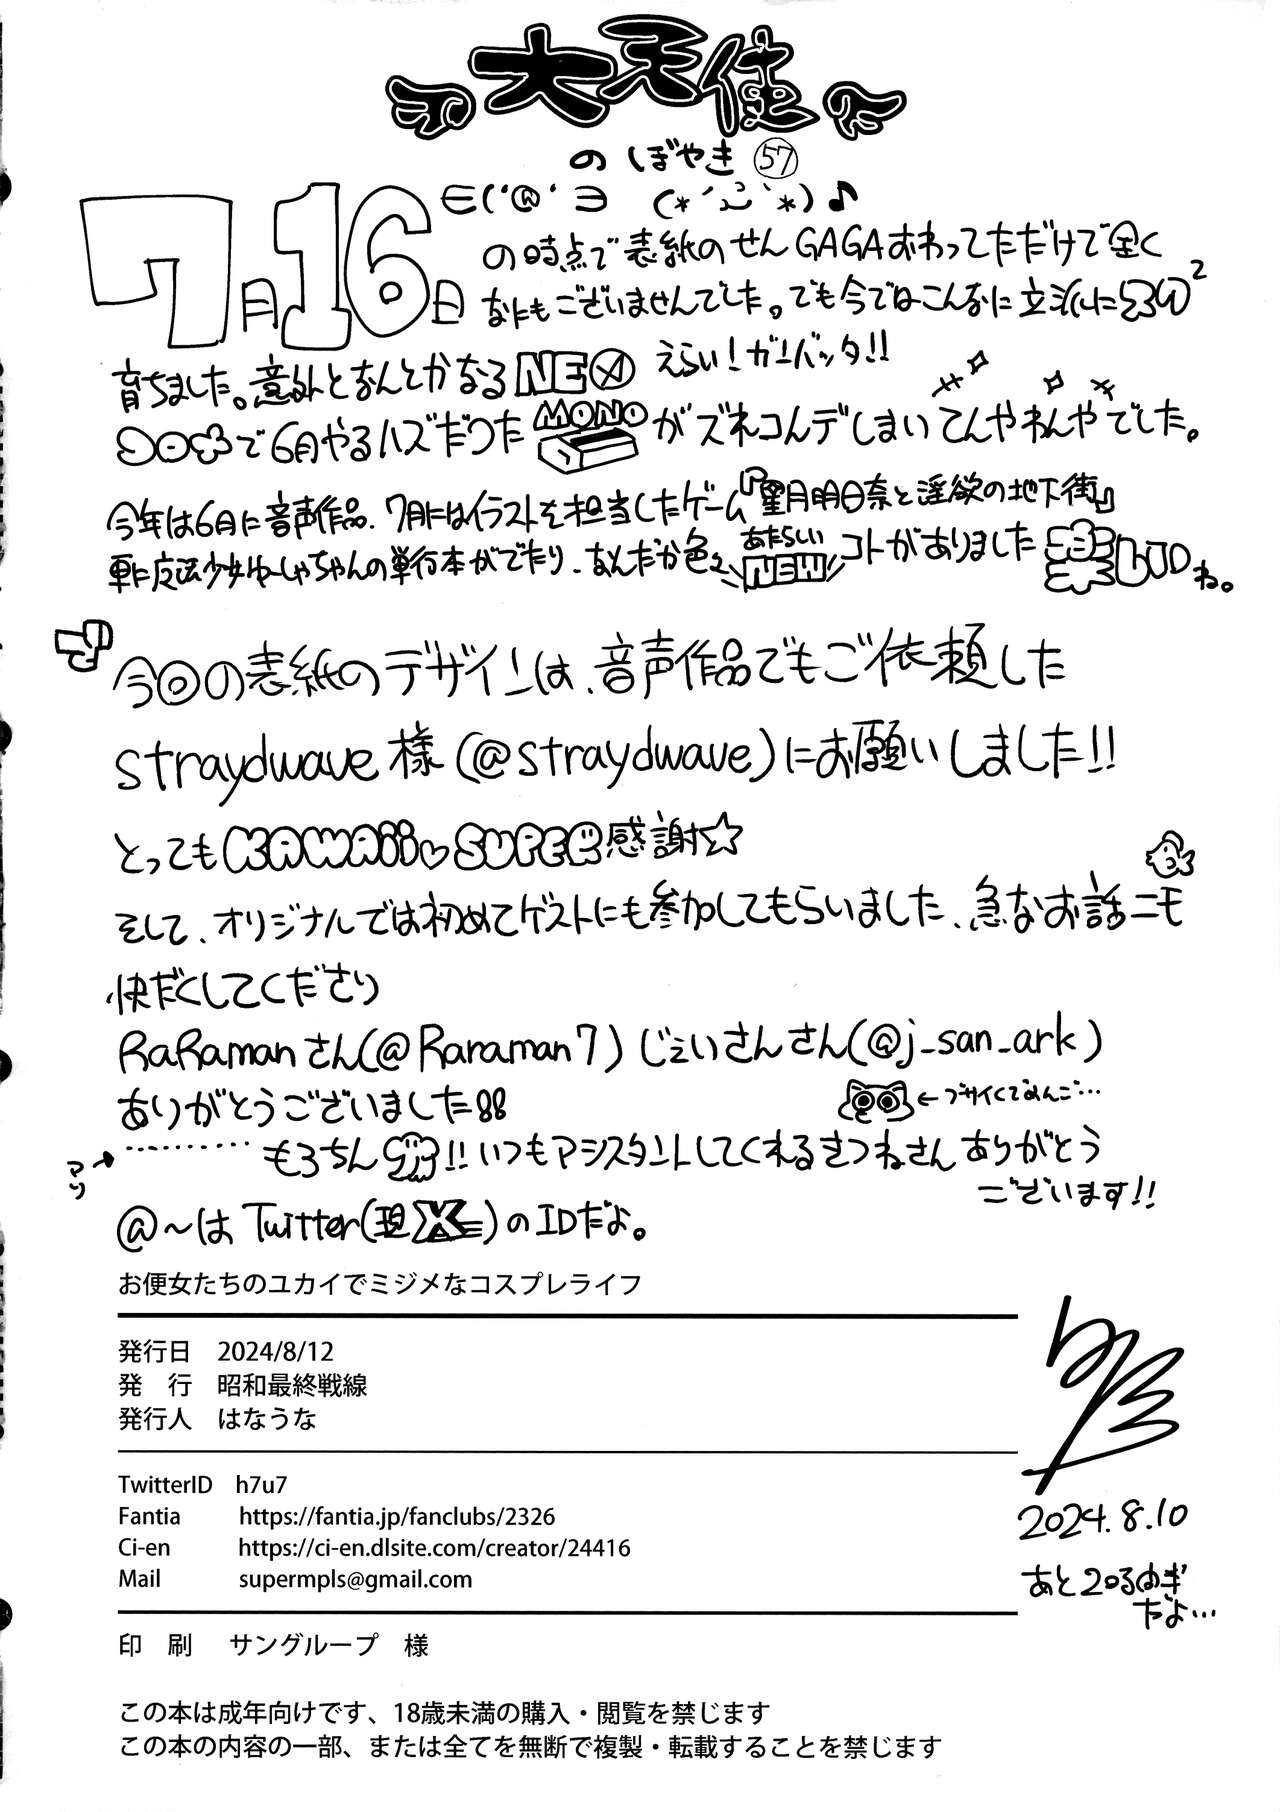 大天使
のぼやき 57
7月16日
の時点で表紙のせんGAGAおわってただけで全く
なにもございませんでした。でも今ではこんなに立派に
育ちました。意外となんとかなるNE えらい!ガンバッタ!!
で6月やるハズだった MONO がズれコんデしまい てんやわんやでした。
今年は6月に音声作品、7月にはイラストを担当したゲーム『星月明日奈と淫欲の地下街』
更に魔法少女ゆーしゃちゃんの単行本がでたり、なんだか色々 あたらしい NEW コトがありました ね。
今回の表紙のデザインは、音声作品でもご依頼した
straydwave様(@straydwave)にお願いしました!!
とってもKAWAii♡SUPER感謝☆
そして、オリジナルでは初めてゲストにも参加してもらいました、急なお話ニモ
快だくしてくださり
RaRamanさん(@Raraman7)じぇいさんさん(@j_san_ark)
ありがとうございました!!
←ブサイくでめんご…
マリ→
………… もろちん!!いつもアシスタントしてくれるきつねさんありがとう
ございます!!
@~はTwitter(現X)のIDだよ。
お便女たちのユカイでミジメなコスプレライフ
発行日 2024/8/12
発 行 昭和最終戦線
発行人 はなうな
TwitterID h7u7
Fantia https://fantia.jp/fanclubs/2326
Ci-en https://ci-en.dlsite.com/creator/24416
Mail supermpls@gmail.com
2024.8.10
だよ…
印 刷 サングループ 様
この本は成年向けです、18歳未満の購入・閲覧を禁じます
この本の内容の一部、または全てを無断で複製・転載することを禁じます